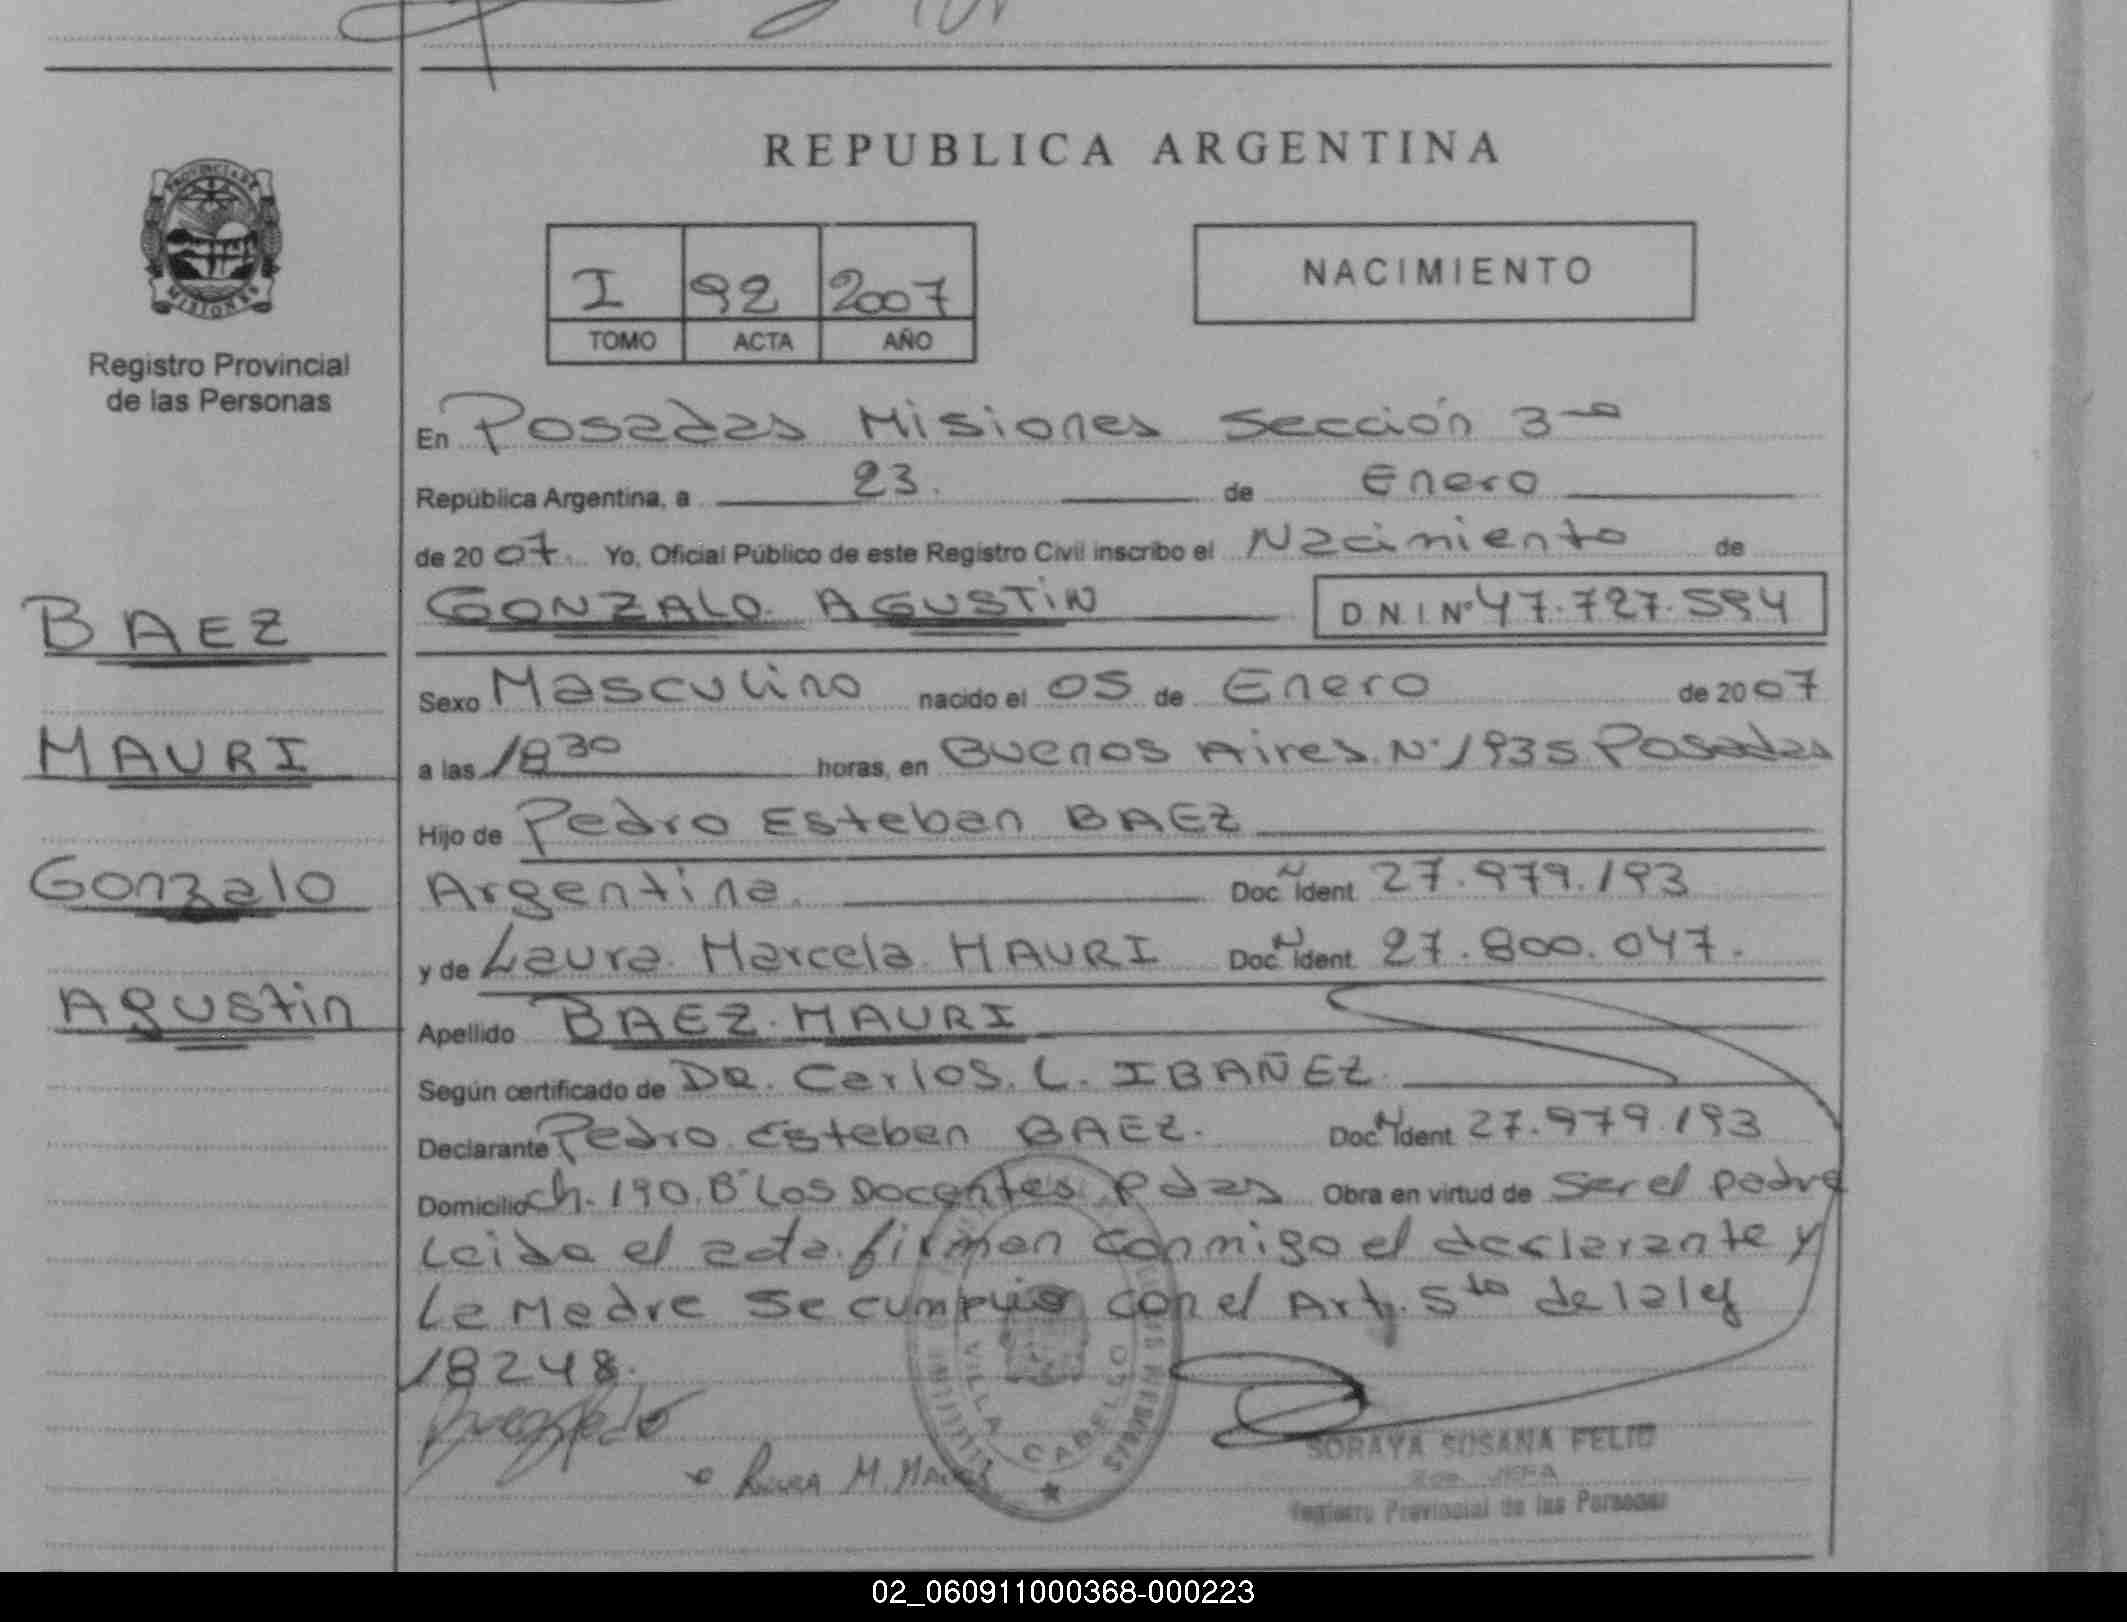 REPUBLICA ARGENTINA
PROVINCIA DE
MISIONES
Registro Provincial
de las Personas
I 92 2007
TOMO ACTA AÑO
NACIMIENTO
En Posadas Misiones Sección 3ª
República Argentina, a 23 de Enero
de 2007. Yo, Oficial Público de este Registro Civil inscribo el Nacimiento de
GONZALO AGUSTIN DNI Nº 47.727.594
BAEZ
MAURI
Gonzalo
Agustin
Sexo Masculino nacido el 05 de Enero de 2007
a las 18 30 horas, en Buenos Aires Nº 1935 Posadas
Hijo de Pedro Esteban BAEZ
Argentina Doc N Ident 27.979.193
y de Laura Marcela MAURI Doc N Ident 27.800.047.
Apellido BAEZ MAURI
Según certificado de DR. Carlos L. IBAÑEZ
Declarante Pedro Esteban BAEZ. Doc N Ident 27.979.193
Domicilio ch. 190. Bº Los Docentes Pdas Obra en virtud de ser el padre
Leida el acta firman conmigo el declarante y
La Madre se cumplio con el Art. 5to de la ley
18248.
M. Mauri
VILLA CABELLO
SORAYA SUSANA FELIU
JEFA
Registro Provincial de las Personas
02_060911000368-000223